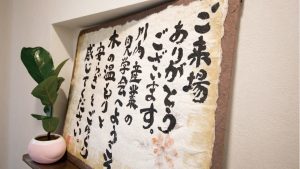 ご来場
ありがとう
ございます。
産業の
見学会へようこそ
木の温もりと
安らぎをこころゆくまで
感じてください